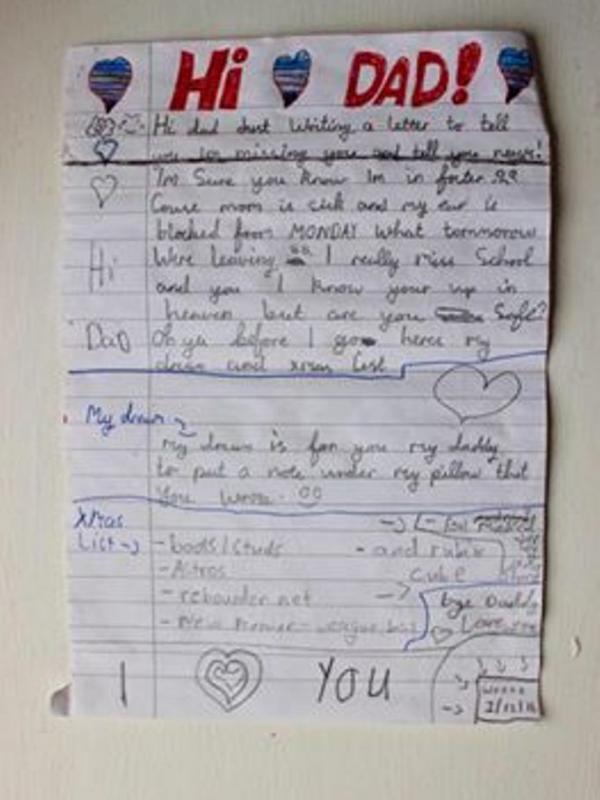 Hi DAD!
Hi dad Just Writing a letter to tell
you Im missing you and tell you news!
I'm Sure you know Im in foster
Cause mom is sick and my ear is
blocked from MONDAY What tommorow
Hi
Were leaving I really miss School
and you I know your up in
heaven but are you Safe?
Dad
Oh ya before I go heres my
and xmas list
My
my is for you my daddy
to put a note under my pillow that
You wrote
Xmas
List
- boots/studs
- Astros
- rebounder net
- New Premier-League ball
- and rubix
cube
bye Daddy
Love
I YOU